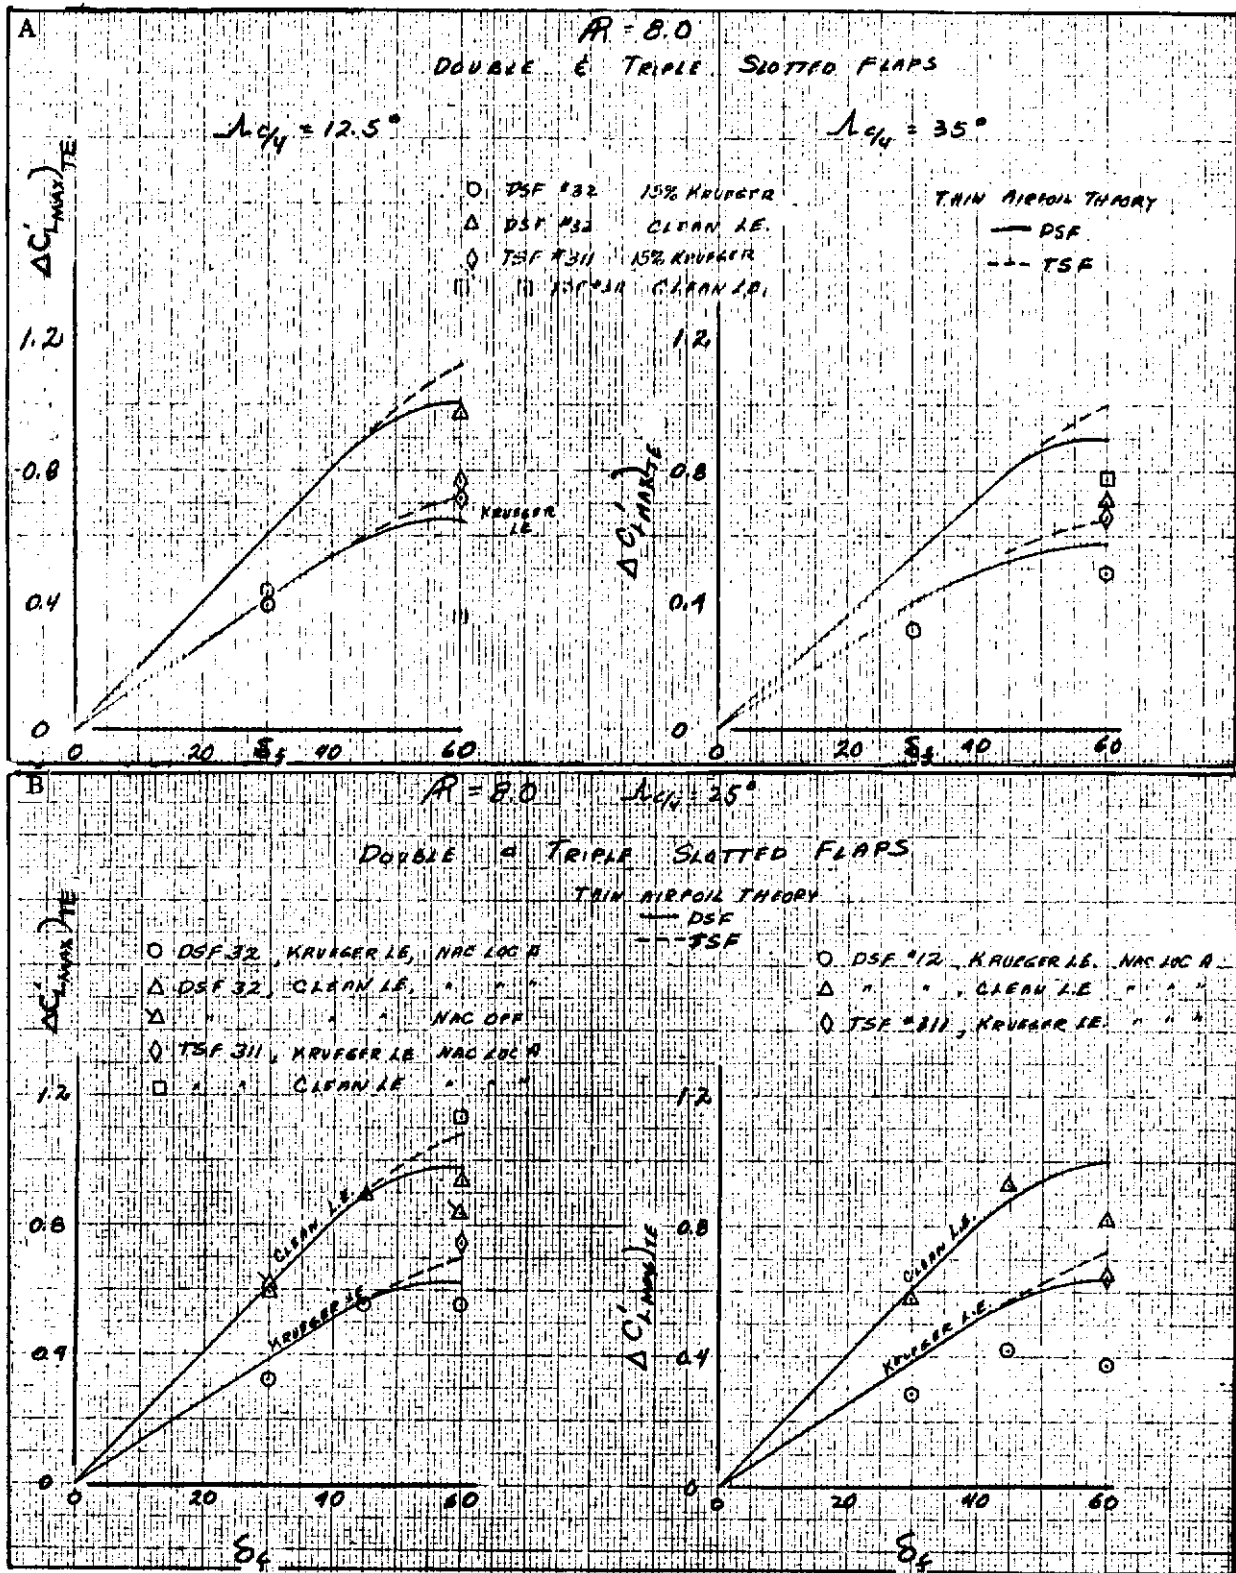 A
AR = 8.0
DOUBLE & TRIPLE SLOTTED FLAPS
Λc/4 = 12.5°
Λc/4 = 35°
DSF #32 15% KRUEGER
DSF #32 CLEAN LE.
TSF #311 15% KRUEGER
CLEAN LE.
THIN AIRFOIL THEORY
— DSF
--- TSF
ΔC'LMAX)TE
1.2
0.8
0.4
0
0 20 δf 40 60
KRUEGER
LE
ΔC'LMAX)TE
1.2
0.8
0.4
0
0 20 40 δf 60
B
AR = 8.0 Λc/4 = 25°
DOUBLE & TRIPLE SLOTTED FLAPS
THIN AIRFOIL THEORY
— DSF
--- TSF
DSF 32, KRUEGER LE, NAC LOC A
DSF 32, CLEAN LE, " " "
" " " NAC OFF
TSF 311, KRUEGER LE NAC LOC A
" " CLEAN LE " " "
DSF #12 KRUEGER LE. NAC LOC A
" " , CLEAN LE " " "
TSF #311, KRUEGER LE. " " "
ΔC'LMAX)TE
1.2
0.8
0.4
0
CLEAN L.E.
KRUEGER LE
0 20 40 60
δf
ΔC'LMAX)TE
1.2
0.8
0.4
0
CLEAN L.E.
KRUEGER L.E.
0 20 40 60
δf